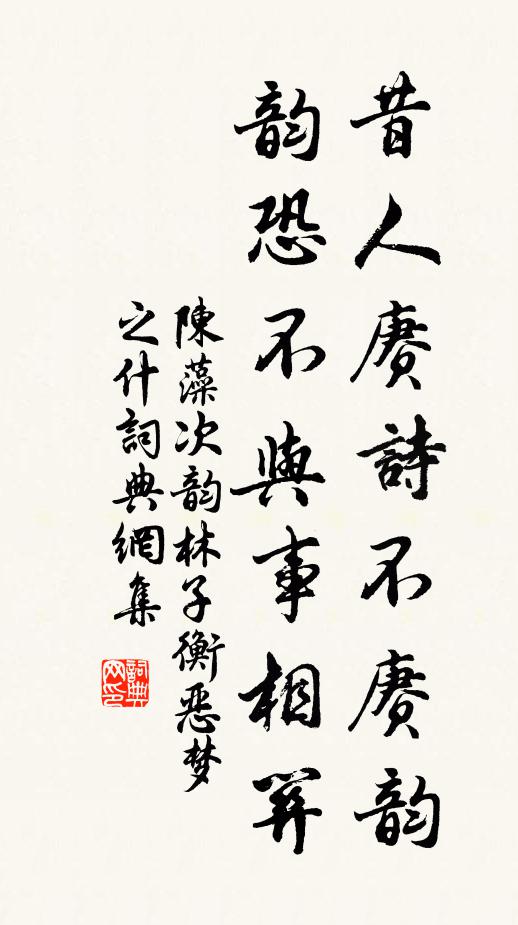 昔人赓詩不赓韵
韵恐不與事相笄
陳藻次韵林子衡恶梦
之什詞典網集
詞典网印